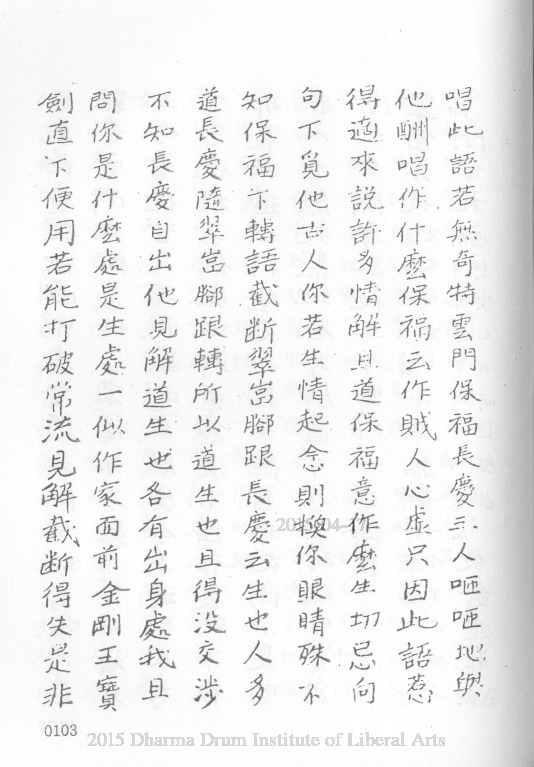 唱此語若無奇特雲門保福長慶三人咂咂地與
他酬唱作什麼保福云作賊人心虛只因此語惹
得適來說許多情解且道保福意作麼生切忌向
句下覓他古人你若生情起念則換你眼睛殊不
知保福下轉語截斷翠嵓腳跟長慶云生也人多
道長慶隨翠嵓腳跟轉所以道生也且得沒交涉
不知長慶自出他見解道生也各有出身處我且
問你是什麼處是生處一似作家面前金剛王寶
劍直下便用若能打破常流見解截斷得失是非
0103
2015 Dharma Drum Institute of Liberal Arts